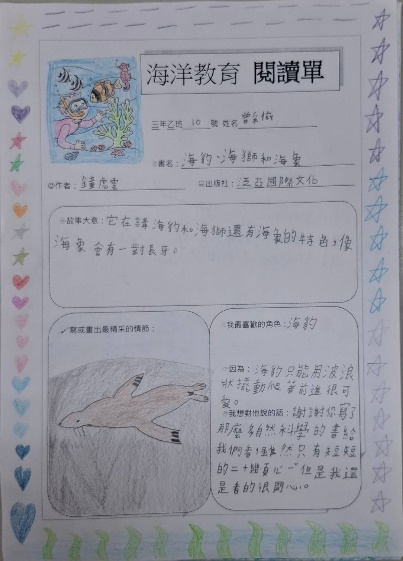 海洋教育 閱讀單
三年乙班 10 號 姓名 曾
書名：海豹、海獅和海象
作者：鐘虎雲 出版社：泛亞國際文化
故事大意：它在講海豹和海獅還有海象的特色，像
海象會有一對長牙。
寫或畫出最精采的情節：
我最喜歡的角色：海豹
因為：海豹只能用波浪
狀擺動爬 前進很可
愛。
我想對他說的話：謝謝你寫了
那麼多自然科學的書給
我們看，雖然只有短短
的二十 但是我還
是看的很開心。